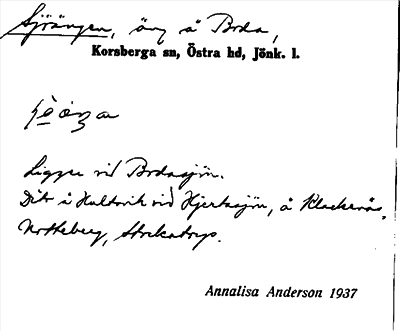 Sjöängen, äng å Broda,
Korsberga sn, Östra hd, Jönk. l.
Ligger vid Brodasjön.
Dito i Hultvik vid Hjertasjön, å Klackenäs,
Notteberg, Strekatorp.
Annalisa Anderson 1937